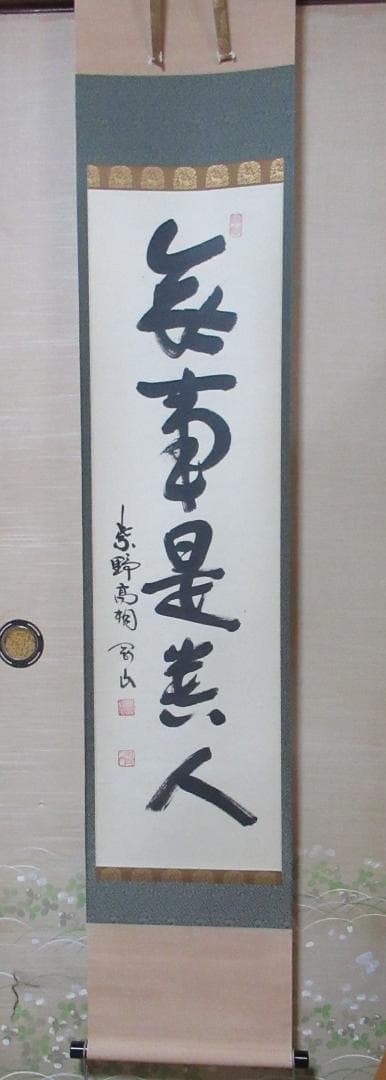 無事是貴人
紫野高桐